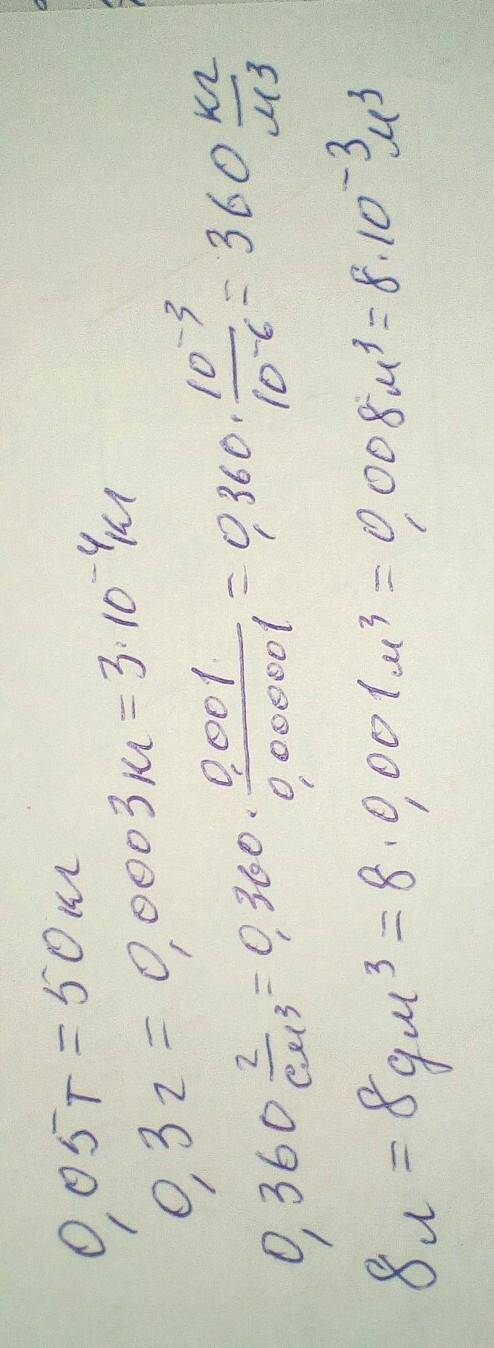 0,05т = 50кг
0,3г = 0,0003кг = 3·10⁻⁴кг
0,360 г/см³ = 0,360 · 0,001/0,000001 = 0,360 · 10⁻³/10⁻⁶ = 360 кг/м³
8л = 8дм³ = 8·0,001м³ = 0,008м³ = 8·10⁻³м³